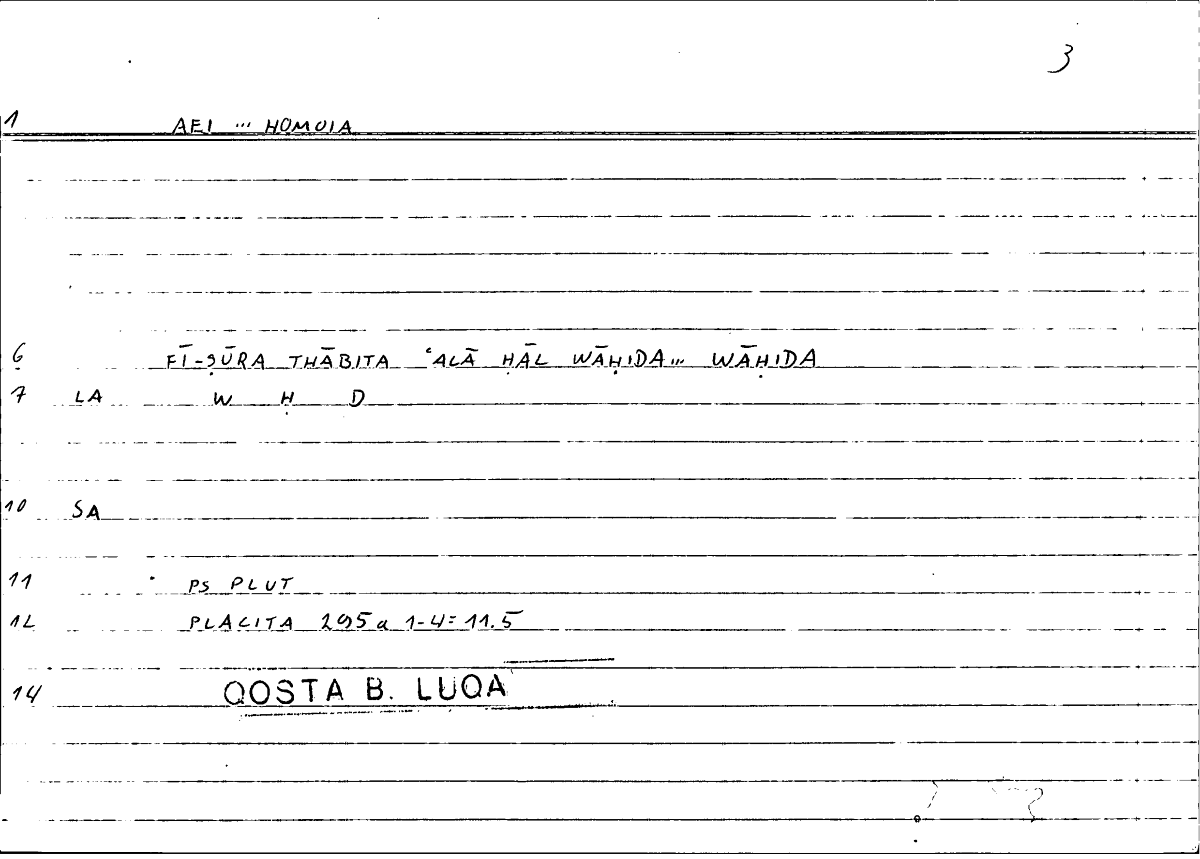 3
1 AEI ... HOMOIA
6 FĪ-ṢŪRA THĀBITA ʿALĀ ḤĀL WĀḤIDA... WĀḤIDA
7 LA W Ḥ D
10 SA
11 PS PLUT
12 PLACITA 295a 1-4 = 11.5
14 QOSTA B. LUQA